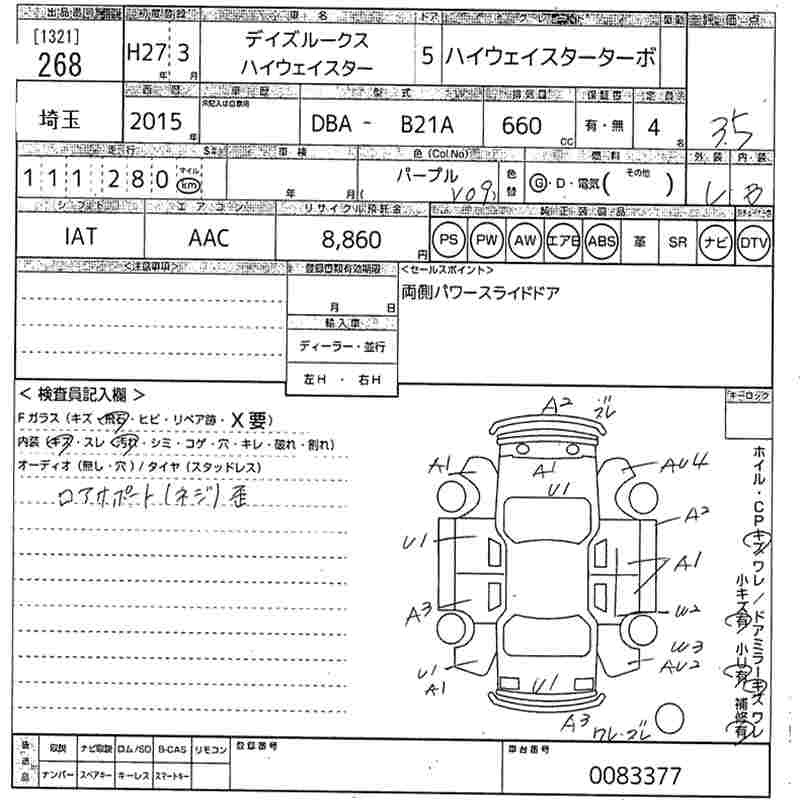 出品番号 初度登録 車名 ドア グレード 車歴 評価点
[1321]
268
H27年 3月
デイズルークス
ハイウェイスター
5
ハイウェイスターターボ
3.5
埼玉
西暦 車歴 型式 排気量 保証書 定員
2015年
未記入は自家用
DBA - B21A
660 cc
有・無
4名
走行 S# 車検 色 (Col.No) 燃料 外装 内装
111,280 マイル km
年 月
パープル
( V09 )
色替
G・D・電気 ( その他 )
シフト エアコン リサイクル預託金 純正装備品
IAT
AAC
8,860円
PS PW AW エアB ABS 革 SR ナビ DTV
<注意事項>
登録書類有効期限
月 日
輸入車
ディーラー・並行
左H ・ 右H
<セールスポイント>
両側パワースライドドア
< 検査員記入欄 >
Fガラス (キズ・飛石・ヒビ・リペア跡・X要)
内装 (キズ・スレ・汚れ・シミ・コゲ・穴・キレ・破れ・割れ)
オーディオ (無し・穴) / タイヤ (スタッドレス)
ロアサポート(ネジ)歪
キーロック
A2 ズレ
A1 A1 AU4
U1
A2
U1 A1
A3 U2
U1 A1 U1 W3 AU2
A3 ワレ・ズレ
ホイル・CPキズワレ/ドアミラーキズワレ
小キズ有 小U有 補修有
後送品
取説 ナビ取説 ロム/SD B-CAS リモコン
ナンバー スペアキー キーレス スマートキー
登録番号
車台番号
0083377